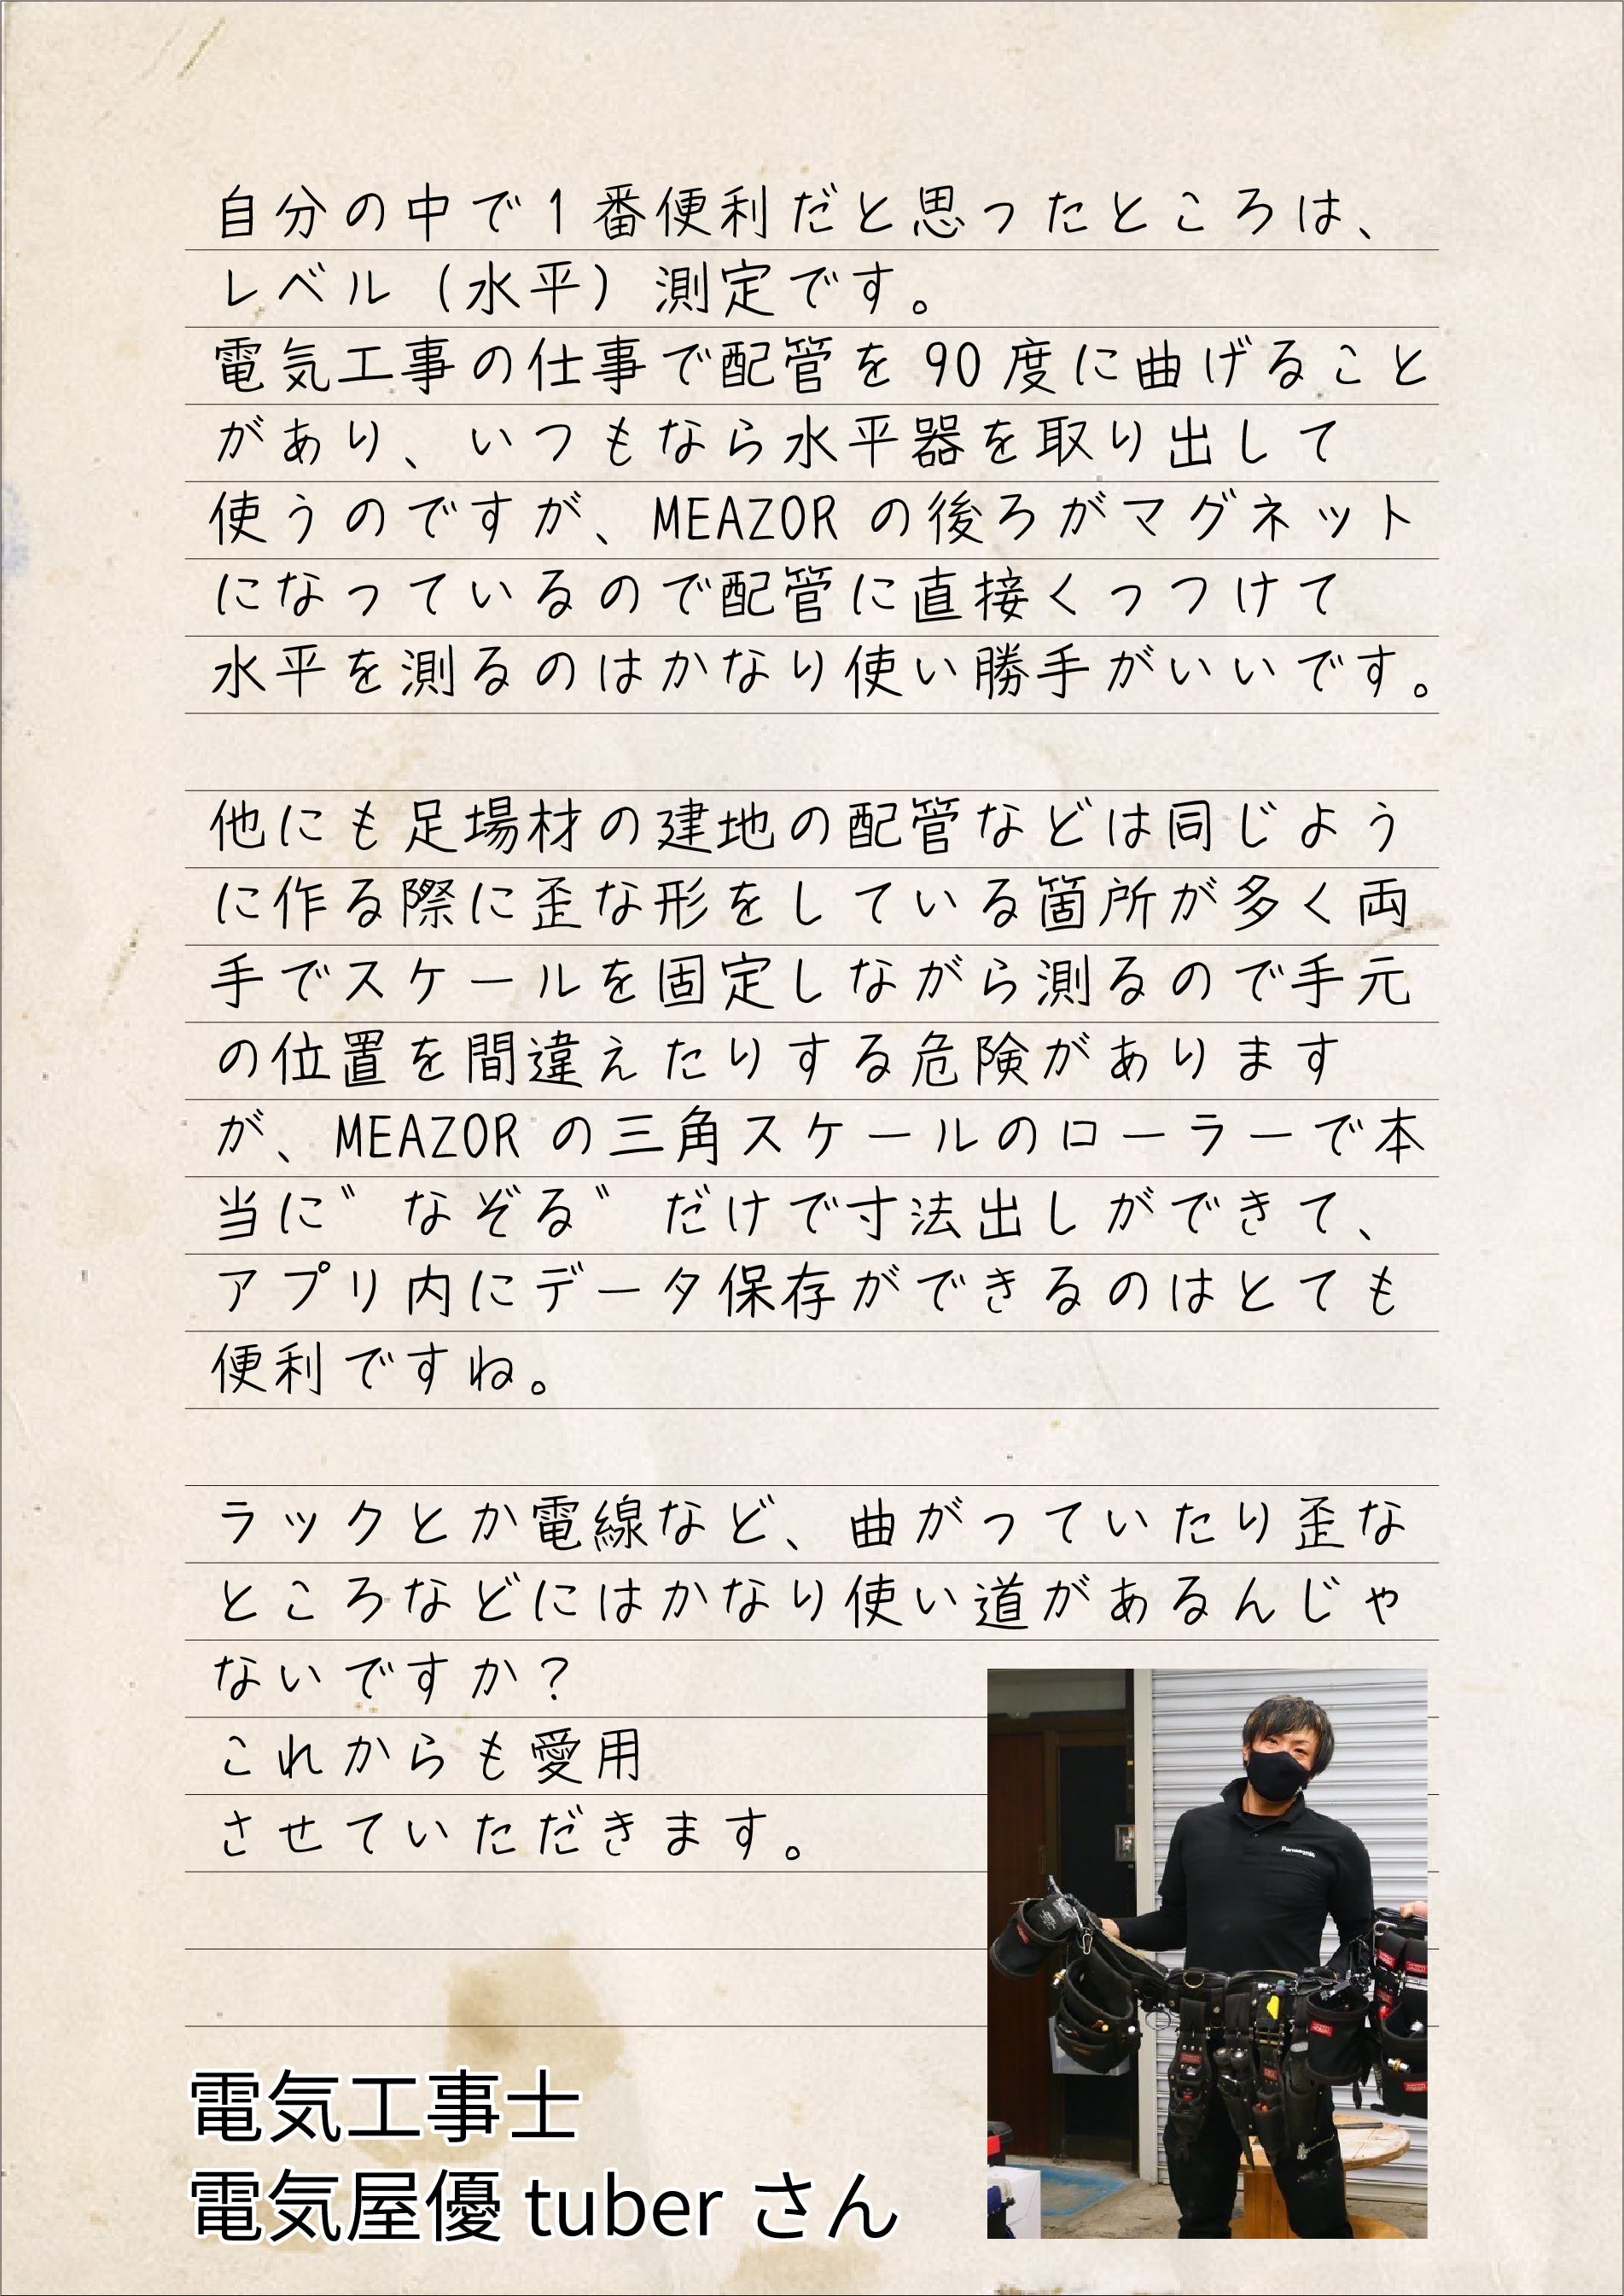 自分の中で1番便利だと思ったところは、
レベル（水平）測定です。
電気工事の仕事で配管を90度に曲げること
があり、いつもなら水平器を取り出して
使うのですが、MEAZORの後ろがマグネット
になっているので配管に直接くっつけて
水平を測るのはかなり使い勝手がいいです。
他にも足場材の建地の配管などは同じよう
に作る際に歪な形をしている箇所が多く両
手でスケールを固定しながら測るので手元
の位置を間違えたりする危険があります
が、MEAZORの三角スケールのローラーで本
当に゛なぞる゛だけで寸法出しができて、
アプリ内にデータ保存ができるのはとても
便利ですね。
ラックとか電線など、曲がっていたり歪な
ところなどにはかなり使い道があるんじゃ
ないですか？
これからも愛用
させていただきます。
Panasonic
電気工事士
電気屋優tuberさん